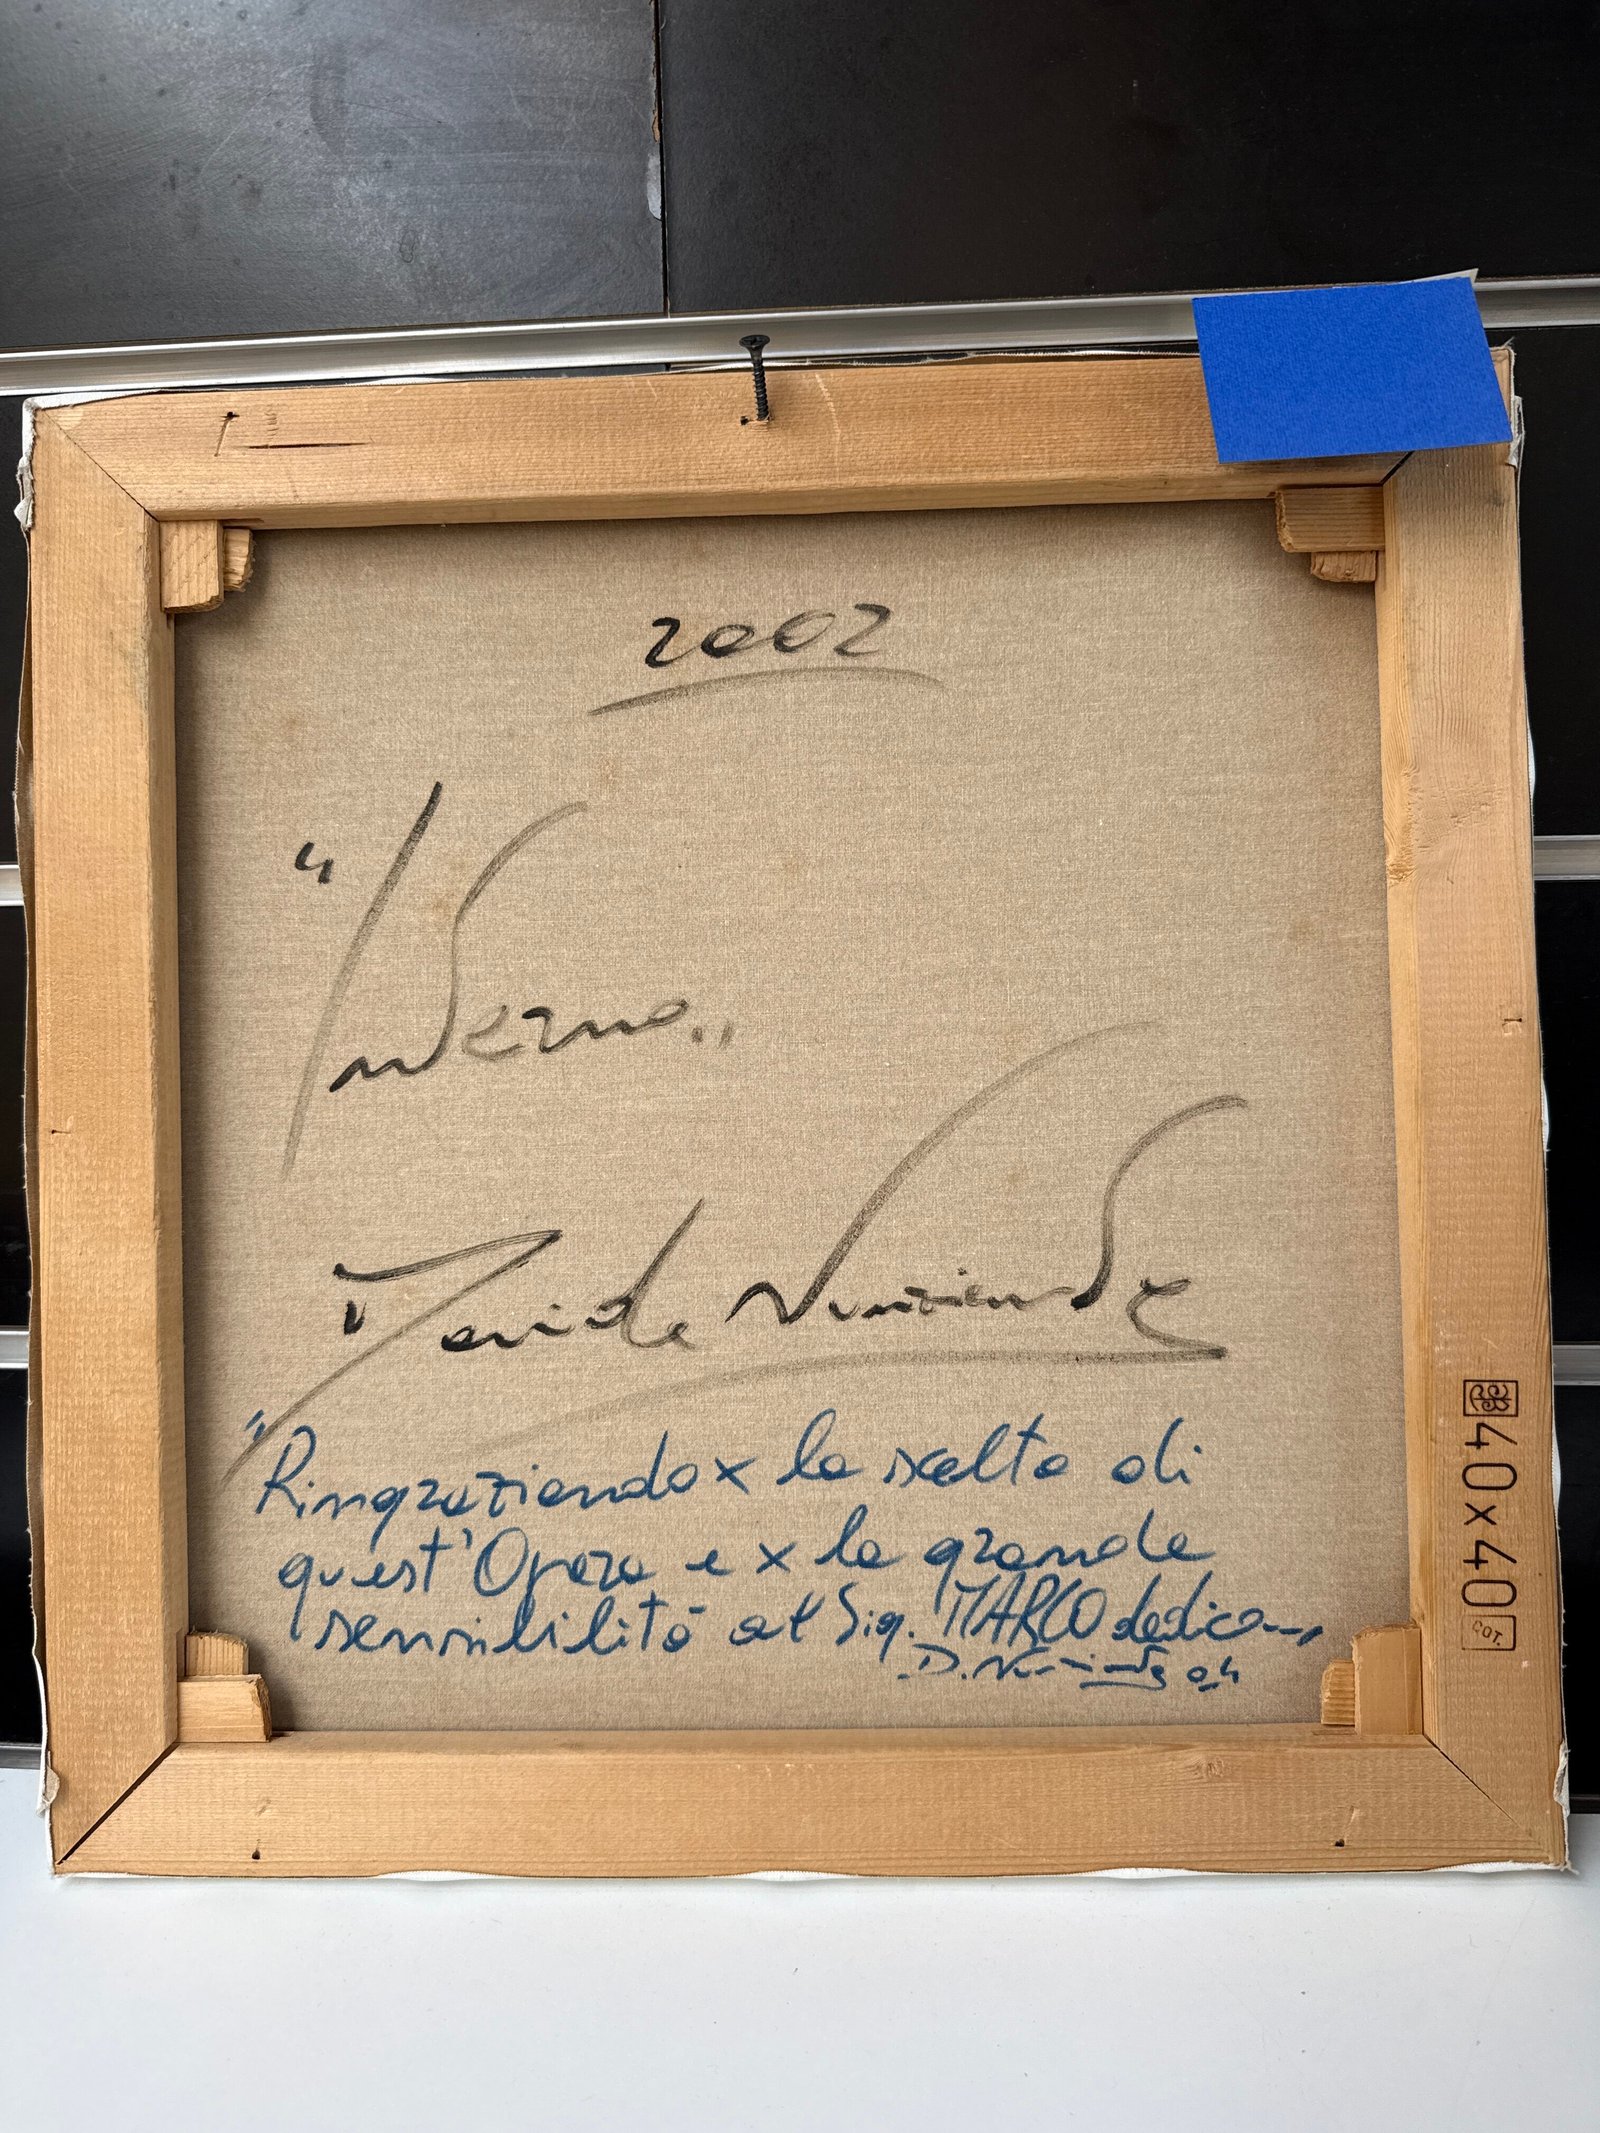 2002
"Inverno"
Davide Nunziante
"Ringraziando x la scelta di
quest'Opera e x la grande
sensibilità al Sig. MARCO dedica"
D. Nunziante 04
40x40
COT.